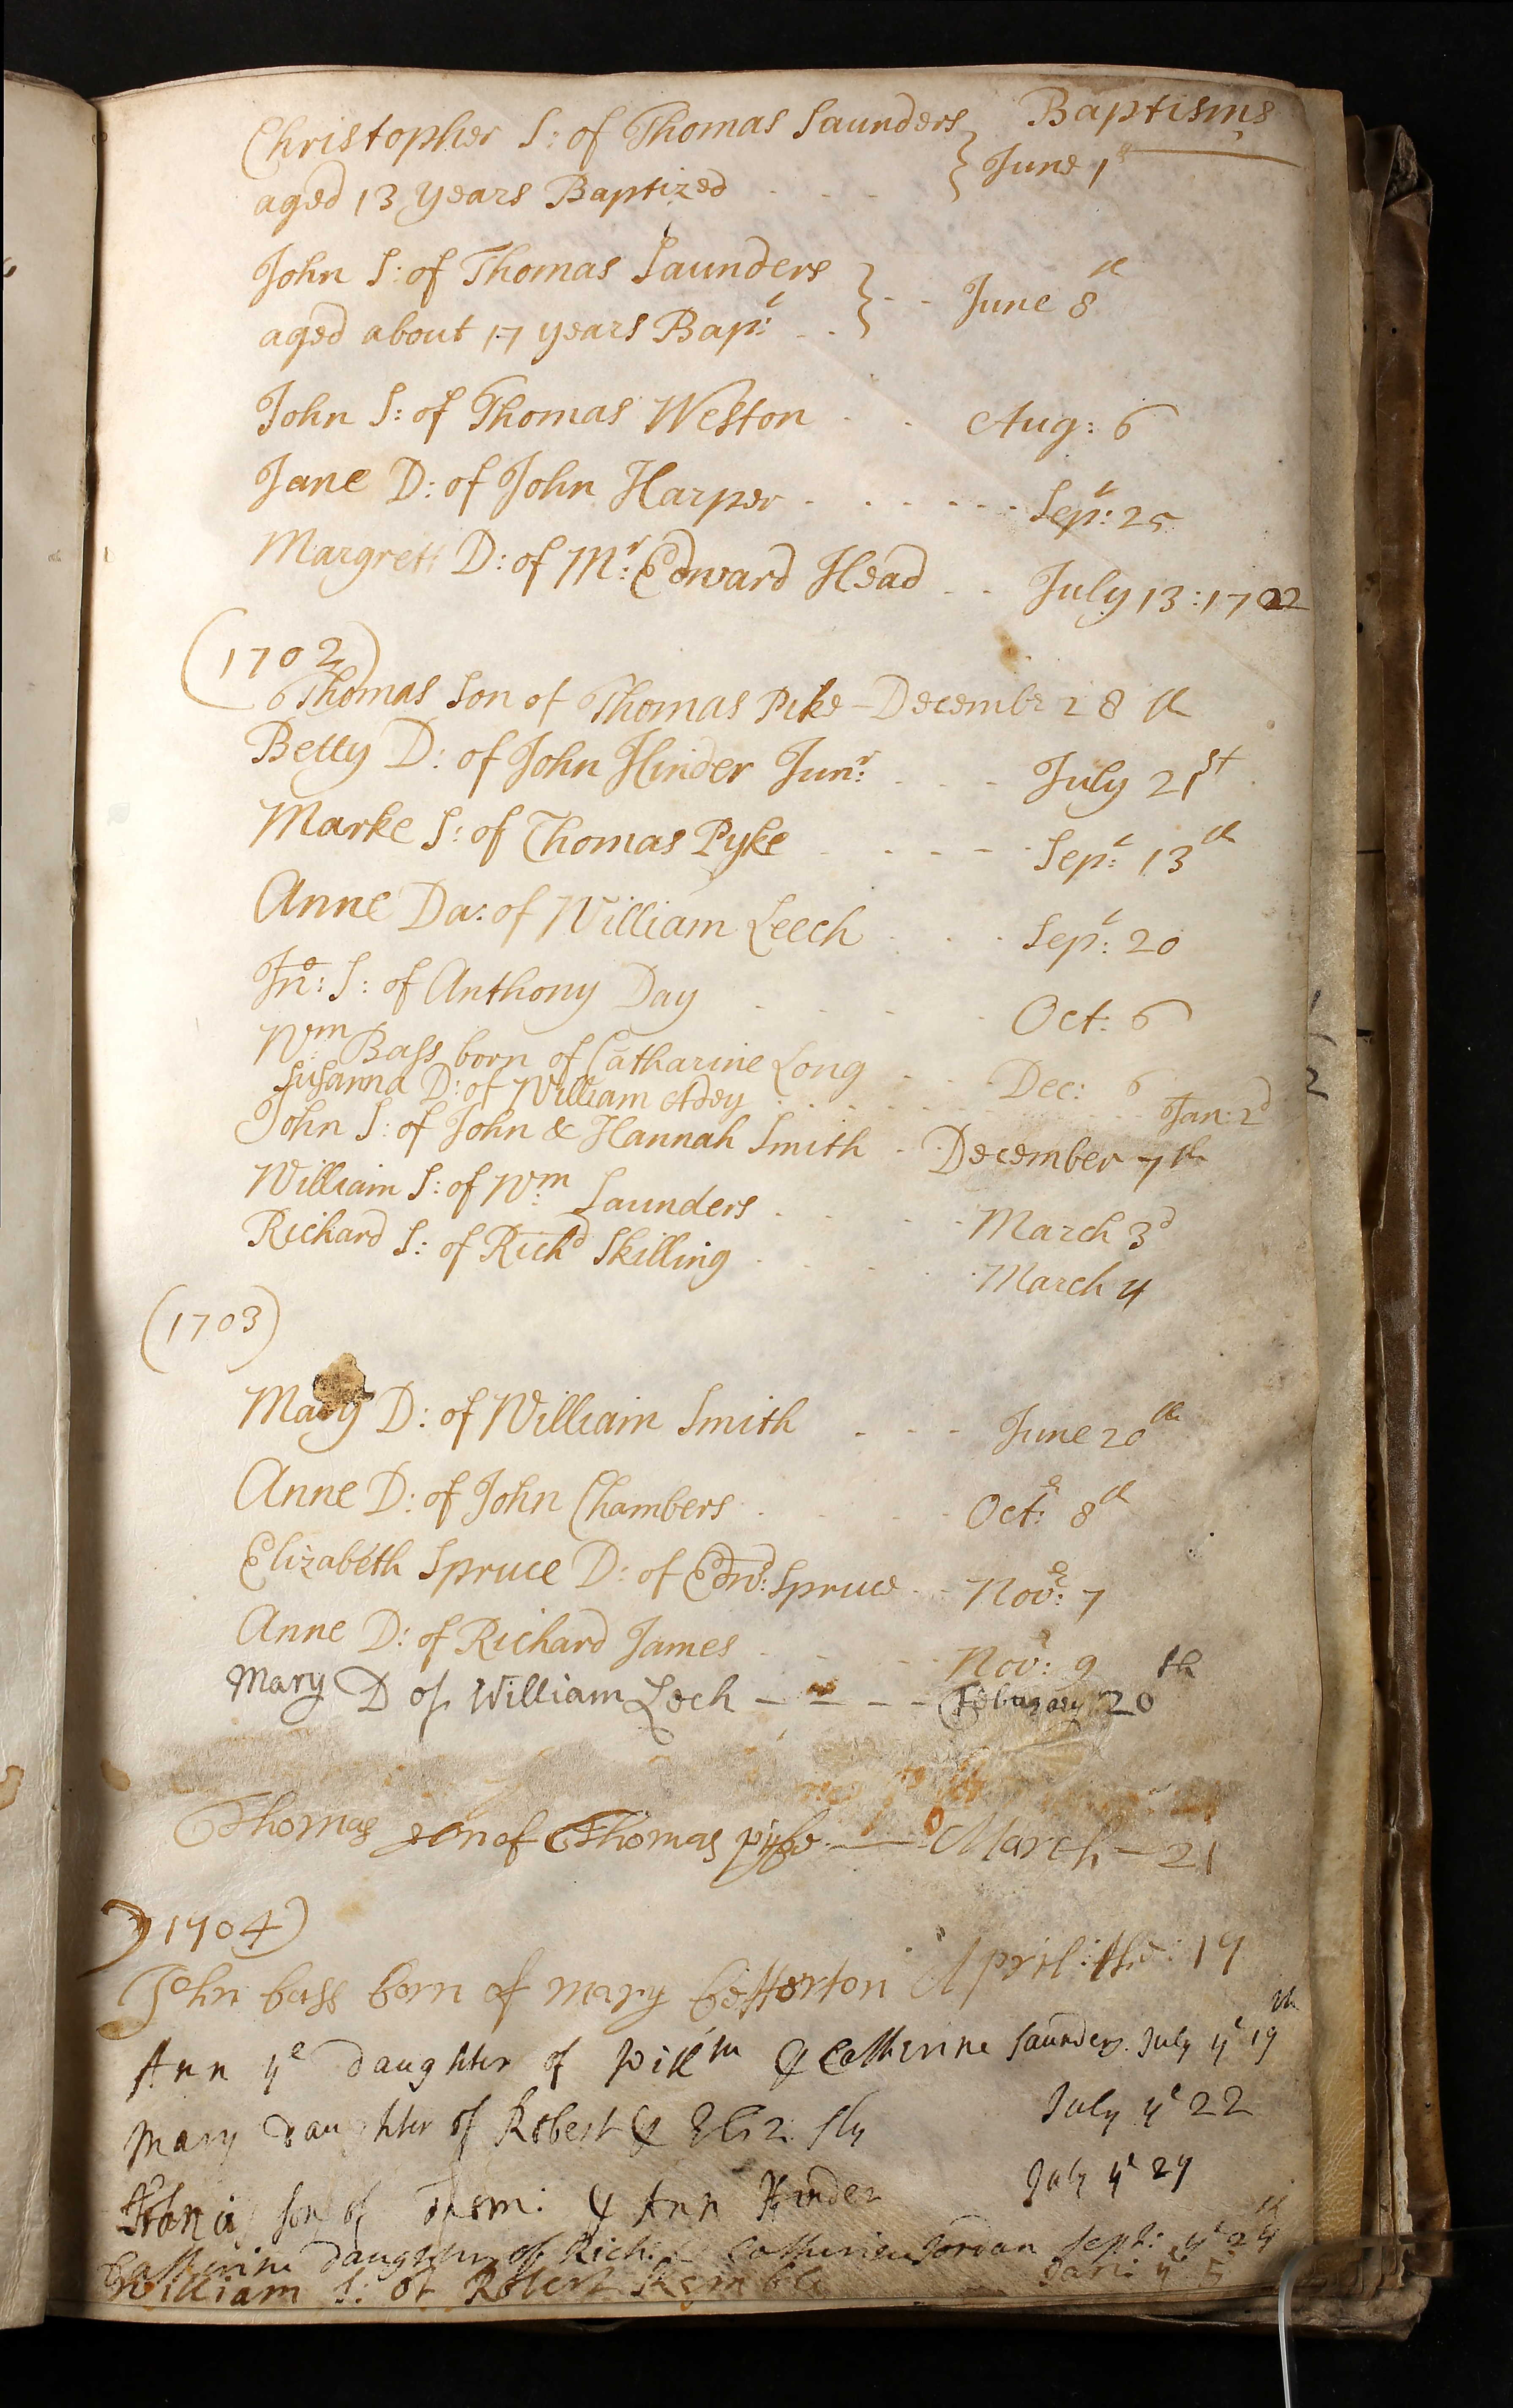 Baptisms
Christopher S: of Thomas Saunders } June 1st
aged 13 years Baptized
John S: of Thomas Saunders } - - June 8th
aged about 17 years Bapt:
John S: of Thomas Weston . . Aug: 6
Jane D: of John Harper . . . . . . Sept: 25
Margrett D: of Mr: Edward Head . . July 13: 1702
(1702)
Thomas Son of Thomas Pike - Decembr 28 th
Betty D: of John Hinder Junr: . . . July 21st
Marke S: of Thomas Pyke . . . . Sept: 13th
Anne Da: of William Leech . . . Sept: 20
Jno: S: of Anthony Day . . . . Oct: 6
Wm: Bass born of Catharine Long . . Dec: 6
Susanna D: of William Adey . . . . . . Jan: 2d
John S: of John & Hannah Smith . . December 7th
William S: of Wm: Saunders . . . . March 3d
Richard S: of Richd Skilling . . . . March 4
(1703)
Mary D: of William Smith . . . June 20th
Anne D: of John Chambers . . . . Octr: 8th
Elizabeth Spruce D: of Edwd: Spruce . . Novr: 7
Anne D: of Richard James . . . . Novr: 9
Mary D of William Lech - - - - February 20th
Thomas son of Thomas pyke — March - 21
1704)
John bass born of mary Betterton April: the: 19
Ann ye daughter of Willm & Catherine Saunders. July ye 19th
Mary Daughter of Robert & Eliz: Sly July ye 22
son of & Ann Hinder July ye 29
Catherine daughter of Rich: & Catherine Jordan Sept: ye 24th
William S: of Robert Kemble Jan: ye 5